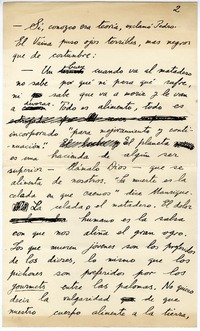 2
— Sí, conozco esa teoría, exclamó Pedro.
El Vima puso ojos terribles, mas negros
que de costumbre:
— Un buey cuando va al matadero
no sabe por qué ni para qué sufre,
ni sabe que va a morir y lo va a
devorar. Todo es alimento, todo es
incorporado "para mejoramiento y conti-
nuación". El planeta
es una hacienda de algún ser
superior — llámale Dios — que se
alimenta de nosotros. "La muerte es la
celada en que creemos" dice Manrique.
La celada, el matadero. El dolor
humano es la salsa
con que nos aliña el gran ogro.
Los que mueren jóvenes son los preferidos
de los dioses, lo mismo que los
pichones son preferidos por los
gourmets, entre las palomas. No quiero
decir la vulgaridad de que
nuestro cuerpo alimente a la tierra,